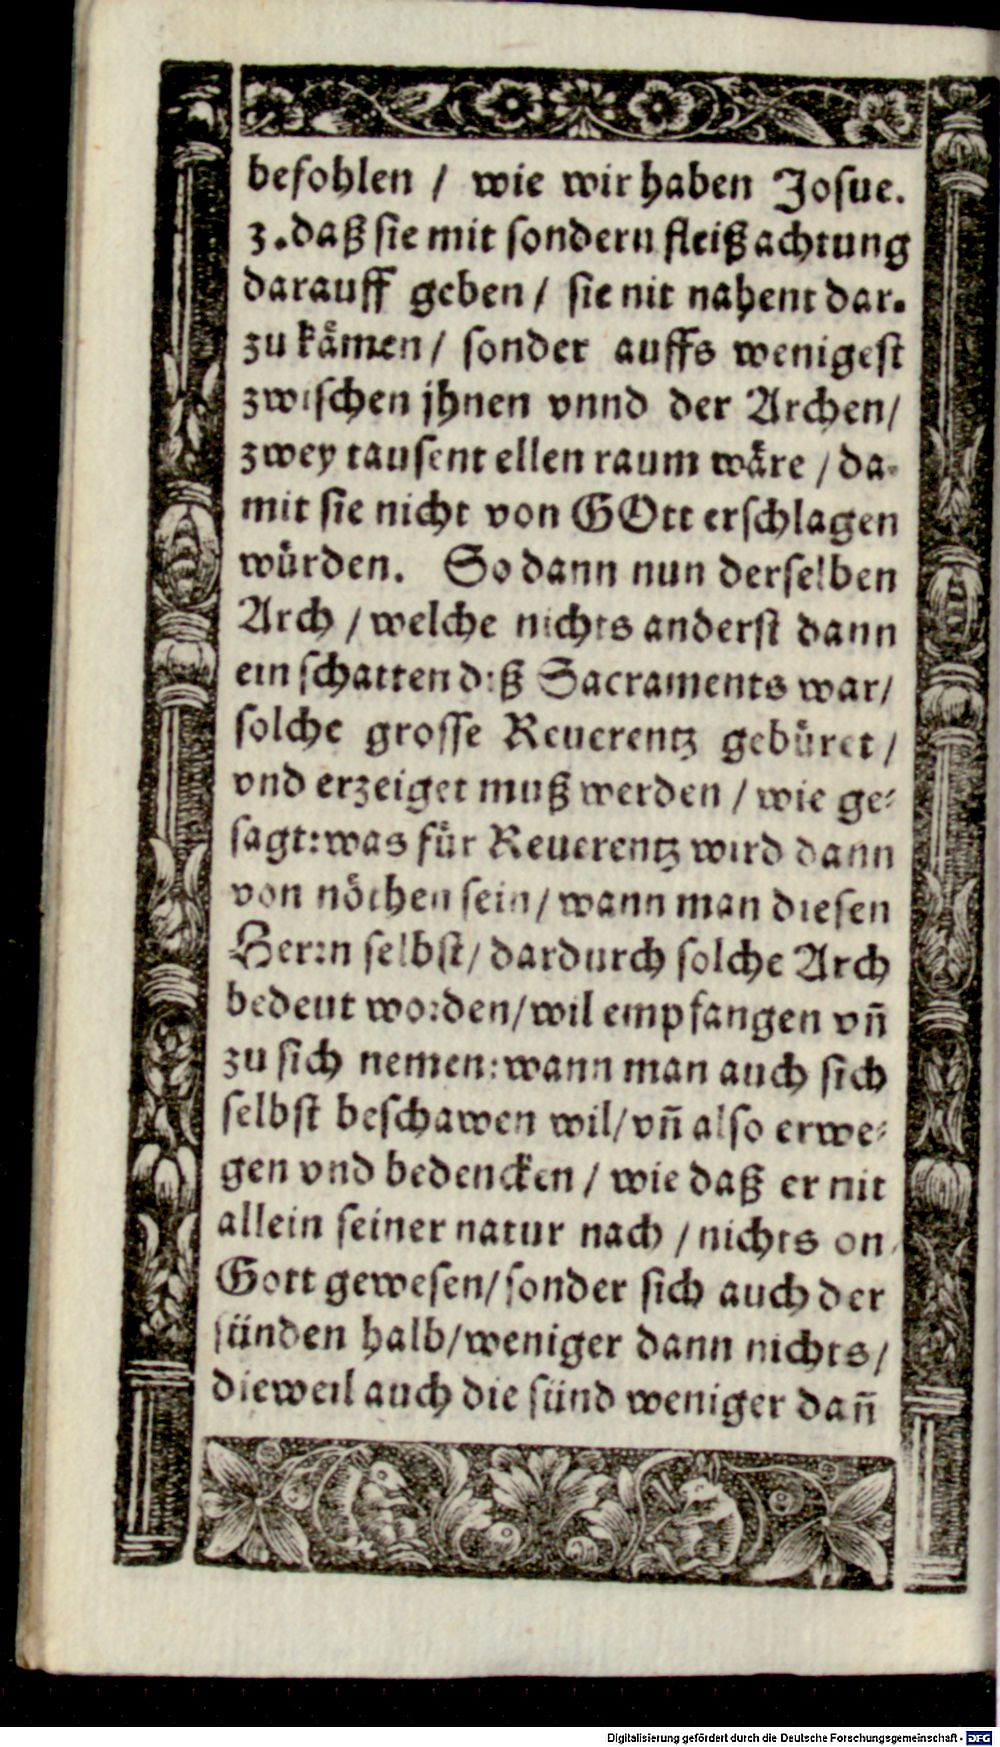 befohlen / wie wir haben Josue.
3. daß sie mit sondern fleiß achtung
darauff geben / sie nit nahent dar-
zu kåmen / sonder auffs wenigest
zwischen jhnen vnnd der Archen /
zwey tausent ellen raum wåre / da-
mit sie nicht von GOtt erschlagen
wůrden. So dann nun derselben
Arch / welche nichts anderst dann
ein schatten diß Sacraments war /
solche grosse Reuerentz gebüret /
vnd erzeiget muß werden / wie ge-
sagt: was für Reuerentz wird dann
von nöthen sein / wann man diesen
Herrn selbst / dardurch solche Arch
bedeut worden / wil empfangen vn̄
zu sich nemen: wann man auch sich
selbst beschawen wil / vn̄ also erwe-
gen vnd bedencken / wie daß er nit
allein seiner natur nach / nichts on
Gott gewesen / sonder sich auch der
sünden halb / weniger dann nichts /
dieweil auch die sünd weniger dan̄
Digitalisierung gefördert durch die Deutsche Forschungsgemeinschaft - DFG